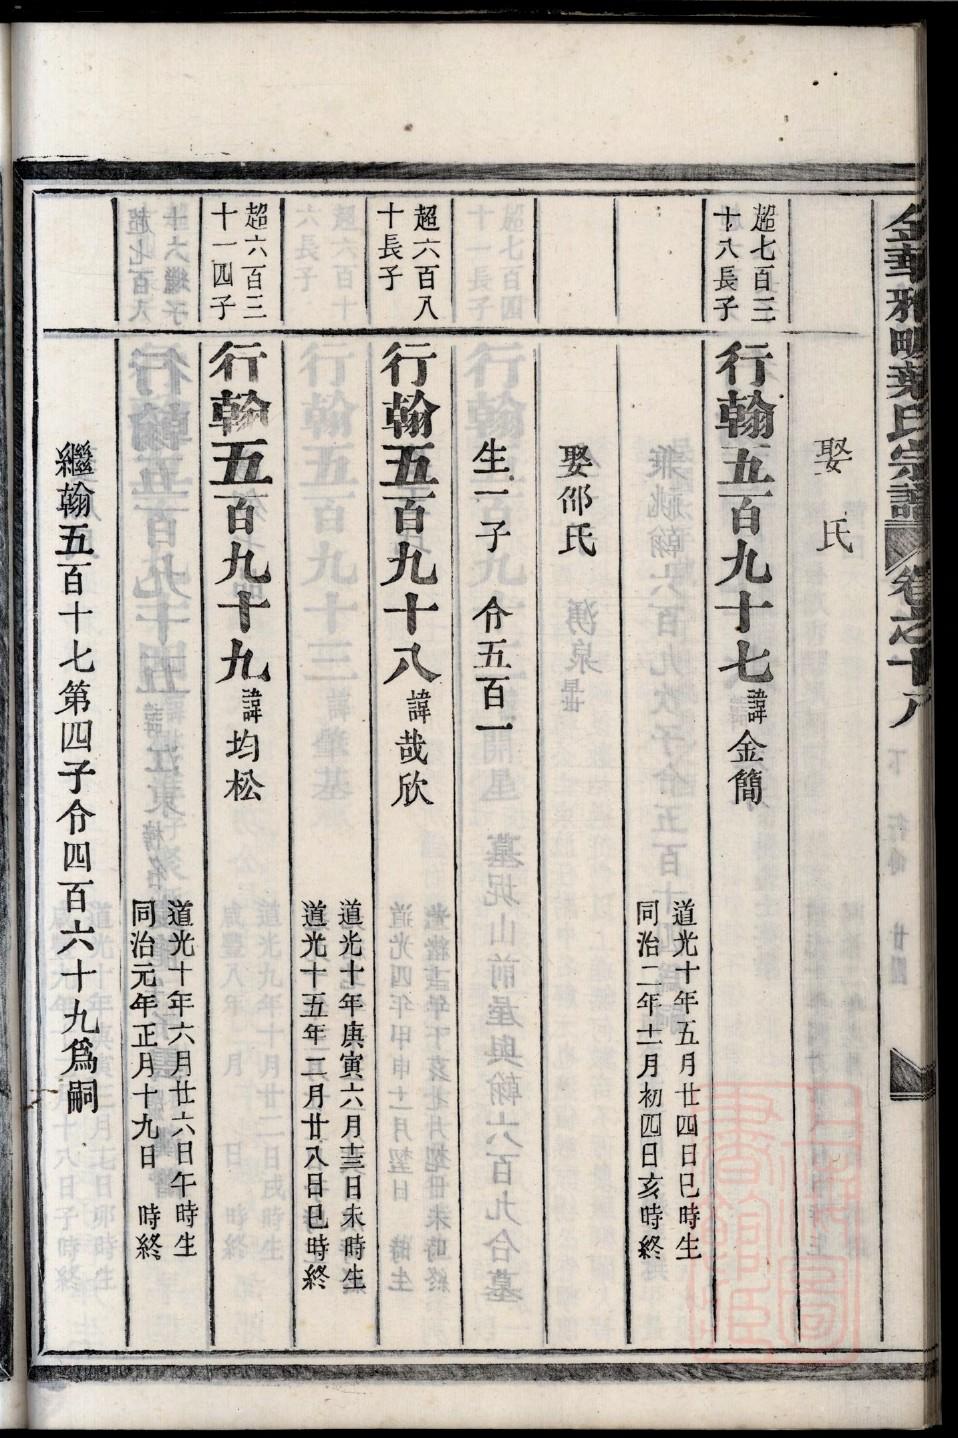 金華雅畈葉氏宗譜 卷之十八
娶 氏
超七百三
十八長子
行翰五百九十七 諱金簡
道光十年五月廿四日巳時生
同治二年十一月初四日亥時終
娶邵氏
生一子 令五百一
超六百八
十長子
行翰五百九十八 諱哉欣
道光十年庚寅六月十三日未時生
道光十五年二月廿八日巳時終
超六百三
十一四子
行翰五百九十九 諱均松
道光十年六月廿六日午時生
同治元年正月十九日 時終
繼翰五百十七第四子令四百六十九爲嗣